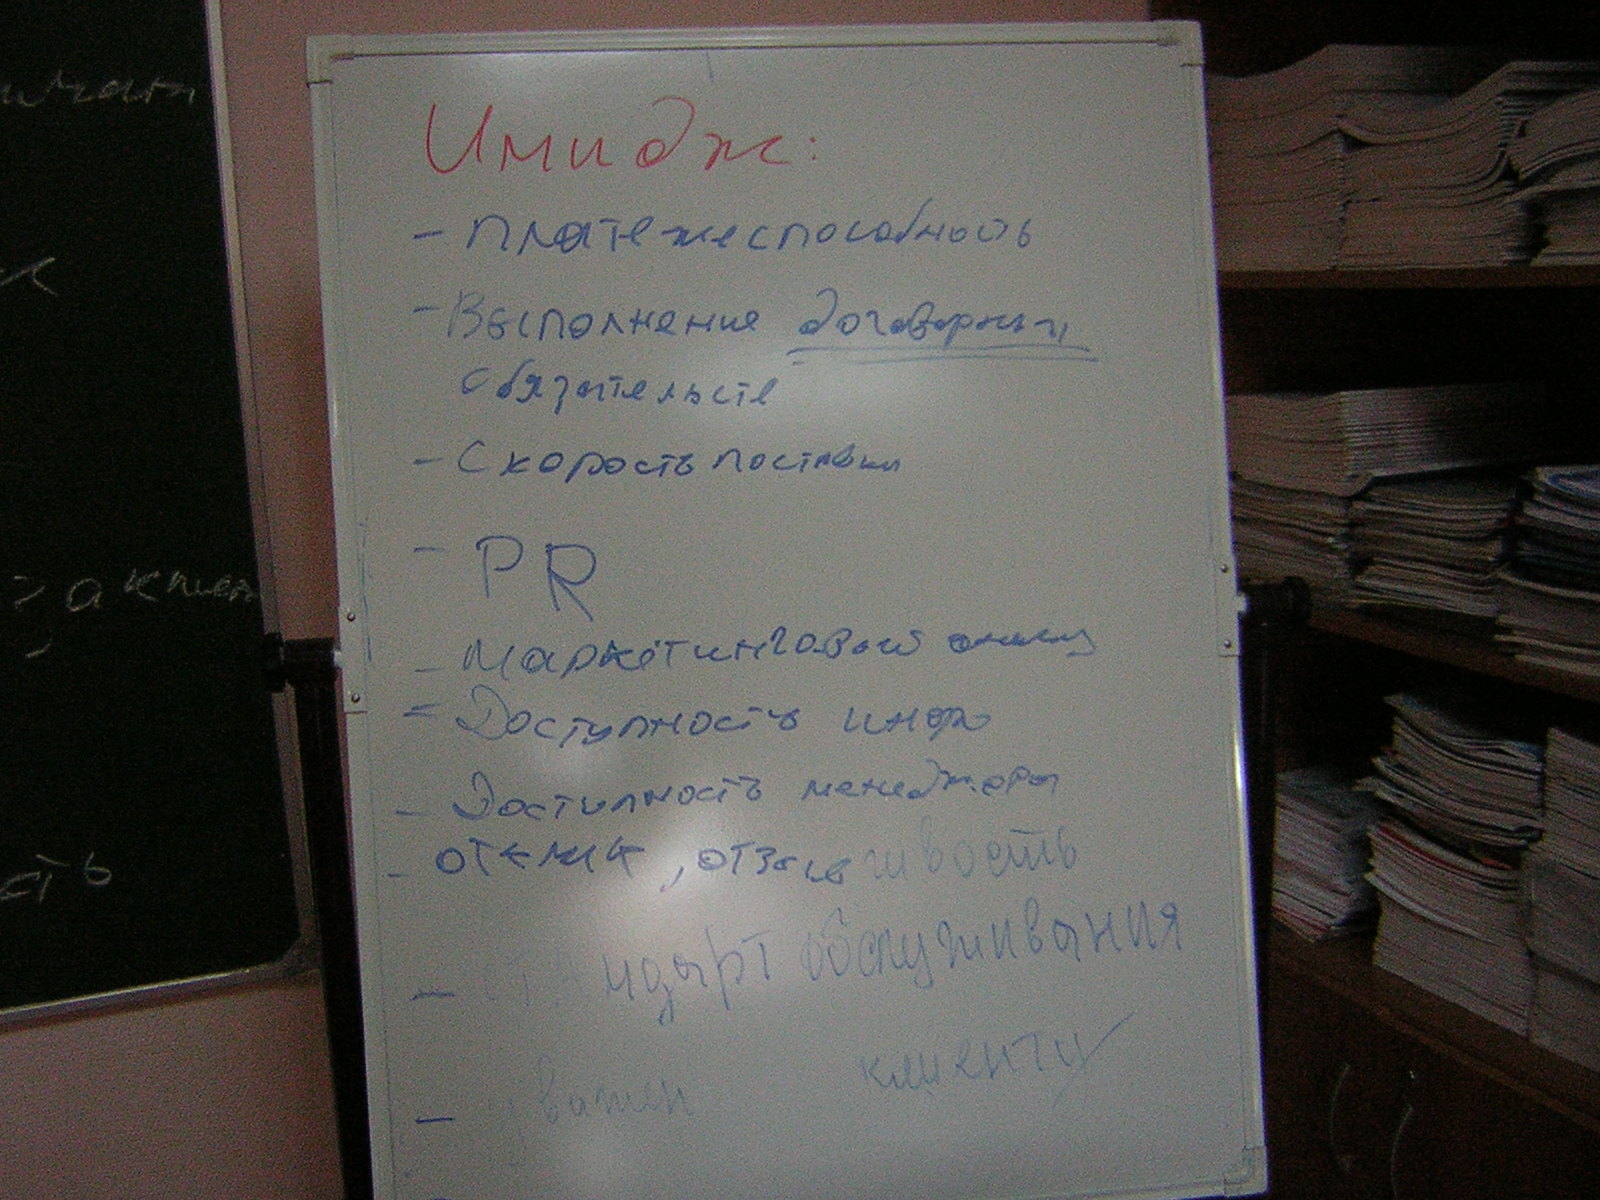 Имидж:
- Платежеспособность
- Выполнение договорных
обязательств
- Скорость поставки
- PR
- Маркетинговый анализ
- Доступность инфо
- Доступность менеджера
- отзывчивость
- стандарт обслуживания
- важен клиенту
сть